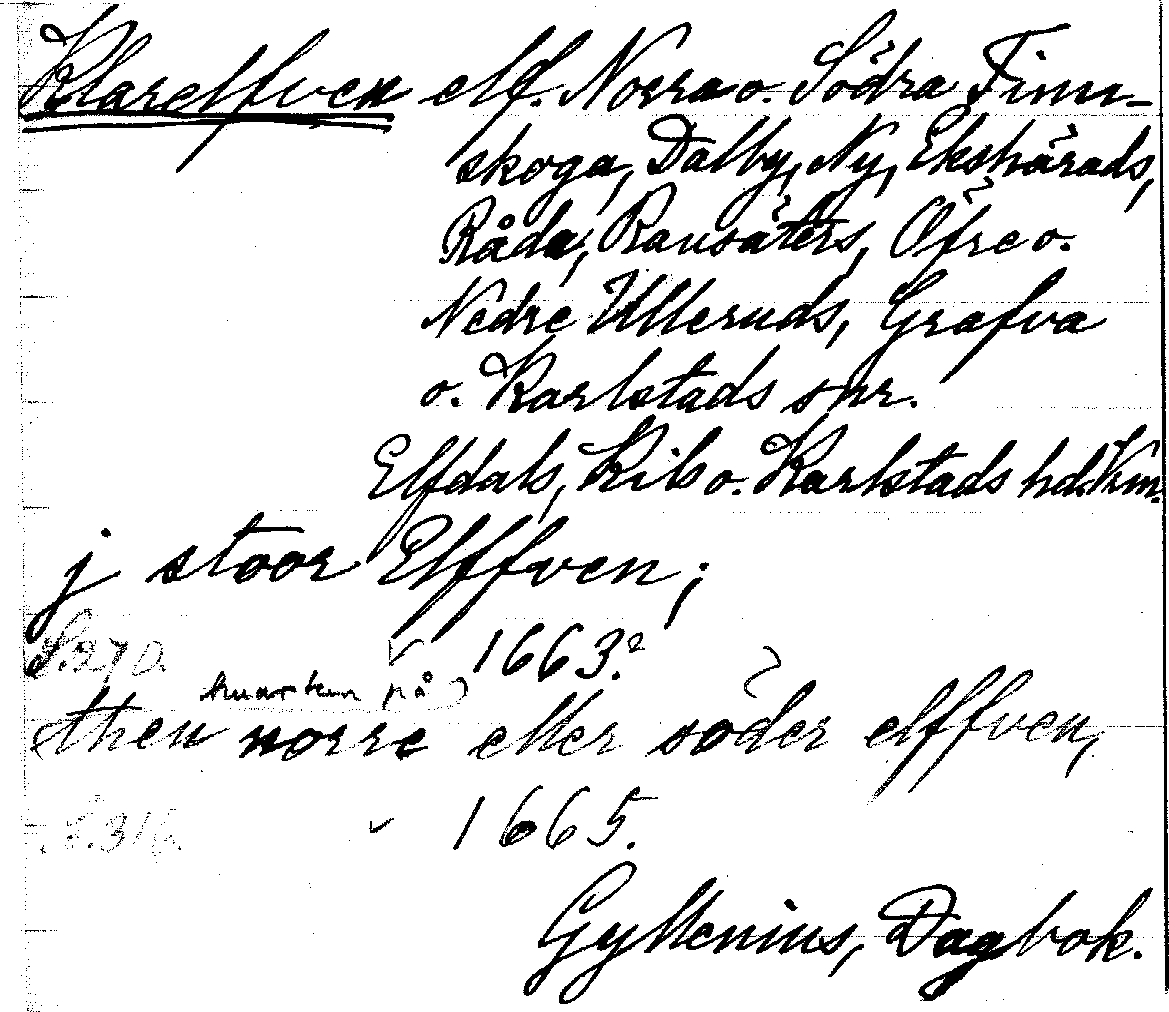 Klarelfven elf. Norra o. Södra Finn-
skoga, Dalby, Ny, Ekshärads,
Råda, Ransäters, Öfre o.
Nedre Ulleruds, Grafva
o. Karlstads snr.
Elfdals, Kils o. Karlstads hd. Vrm.
j stoor Elffven;
S. 270. 1663.2
kvarken på
then norre eller söder elffven,
S. 316. 1665.
Gyllenius, Dagbok.